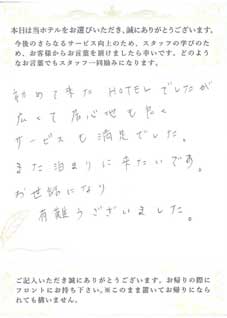 本日は当ホテルをお選びいただき、誠にありがとうございます。
今後のさらなるサービス向上のため、スタッフの学びのため、お客様からお言葉を頂けましたら幸いです。どのようなお言葉でもスタッフ一同励みになります。
初めて来た HOTELでしたが
広くて居心地も良く
サービスも満足でした。
また泊まりに来たいです。
お世話になり
有難うございました。
ご記入いただき誠にありがとうございます。お帰りの際に
フロントにお持ち下さい。※このまま置いてお帰りになら
れても構いません。